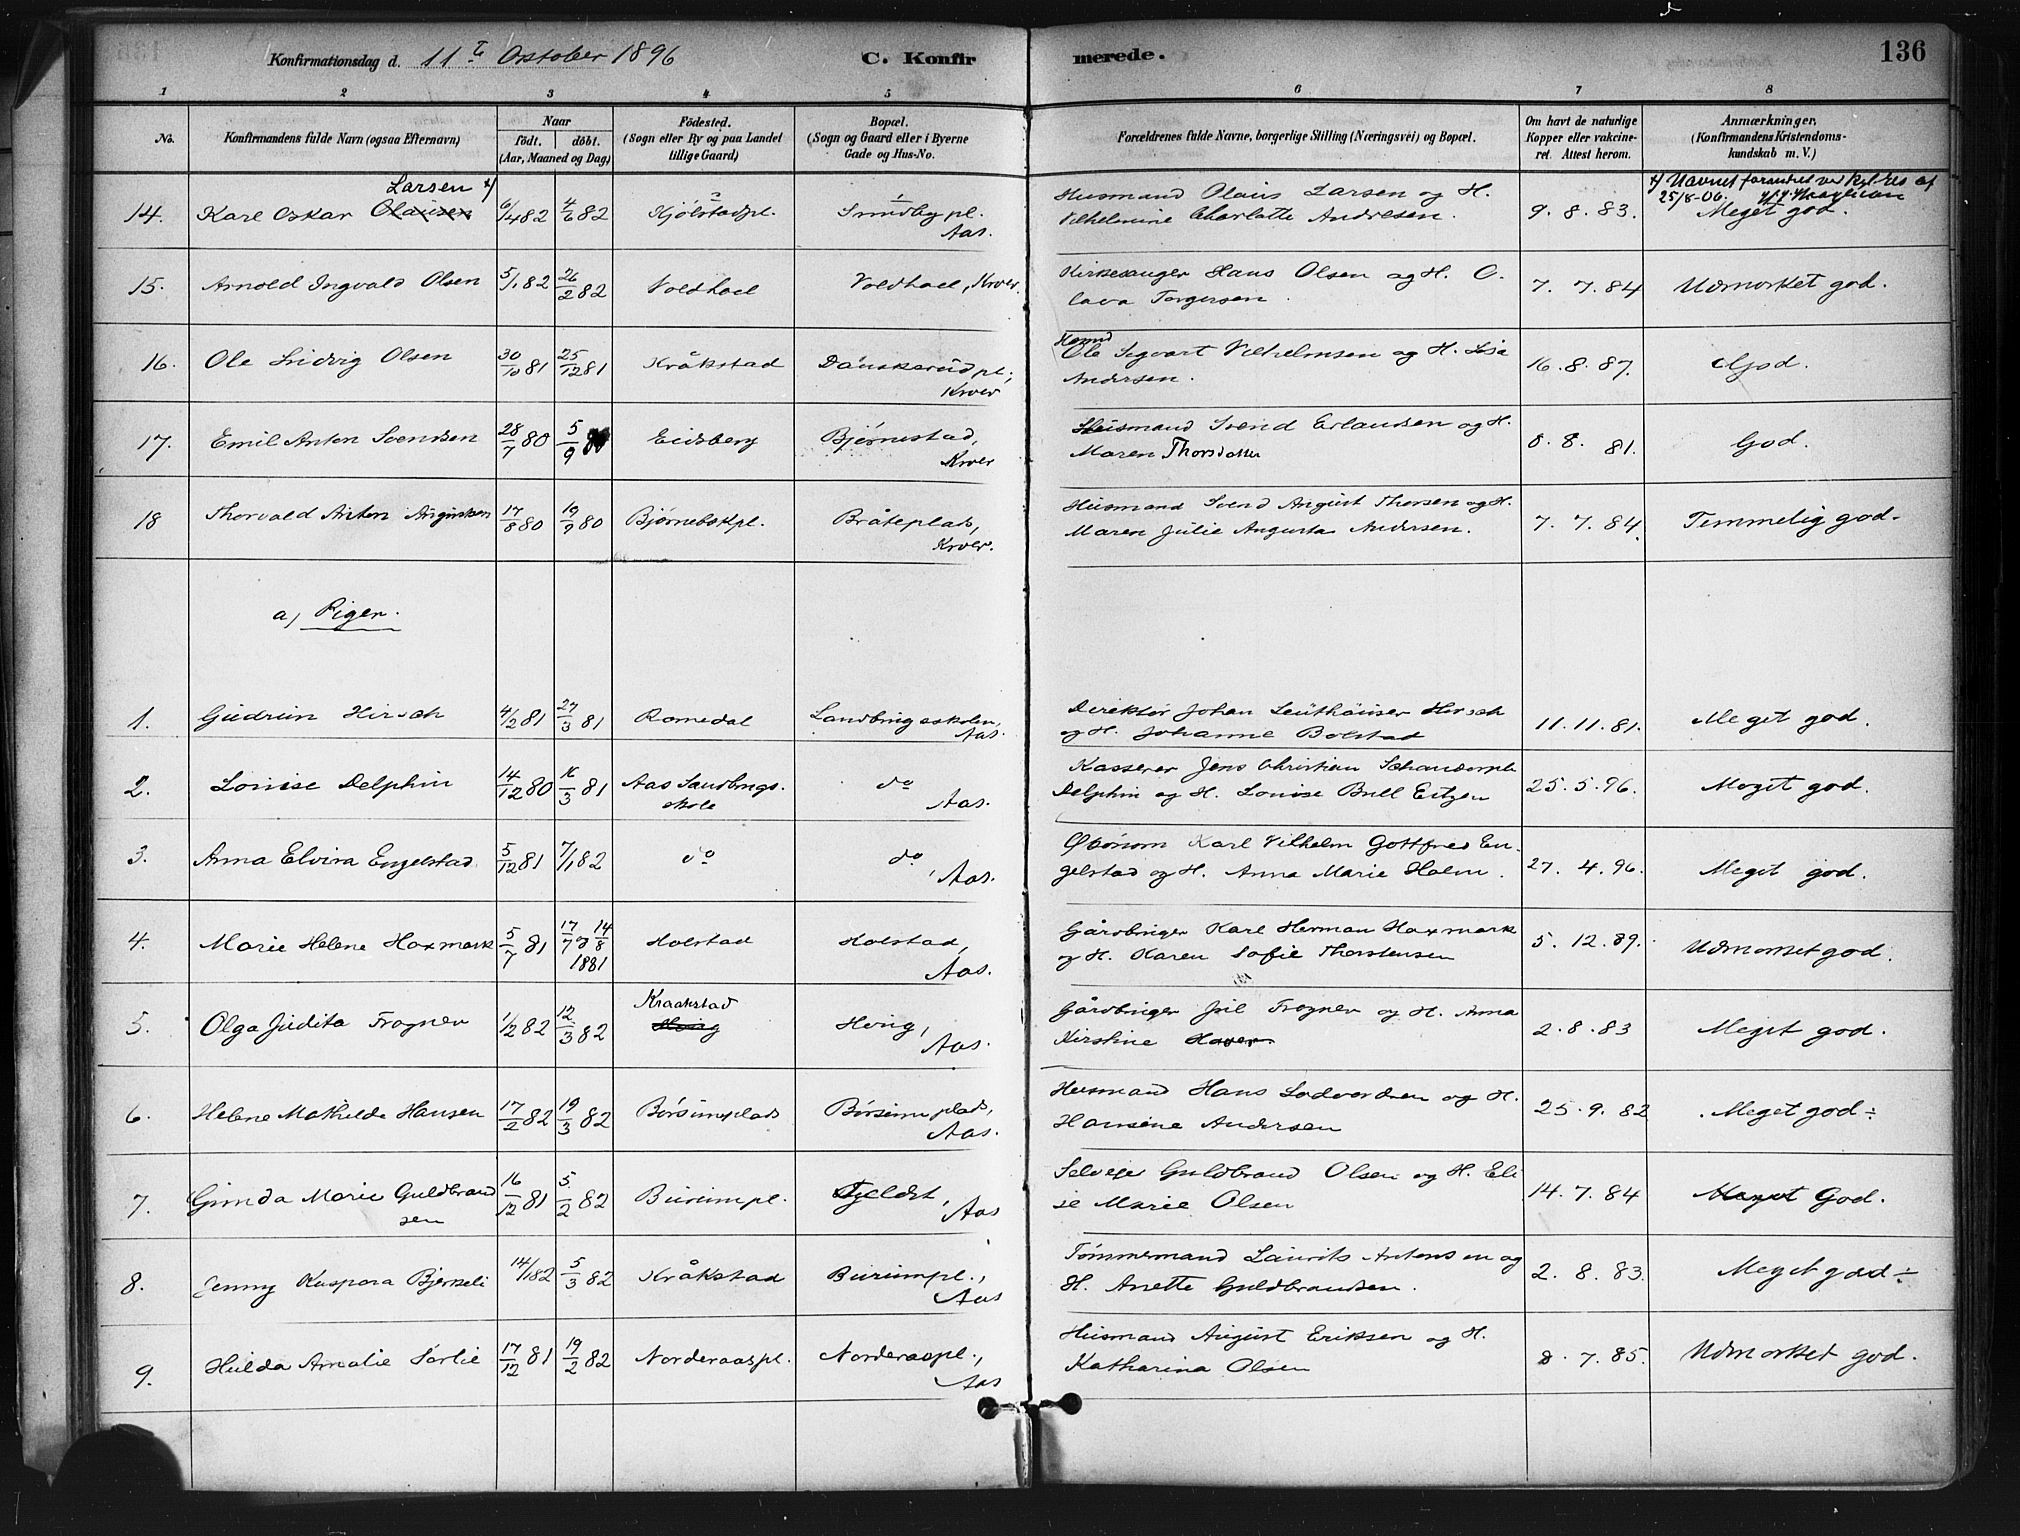 Konfirmationsdag d. 11te October 1896 C. Konfirmerede. 136
1 2 3 4 5 6 7 8
No. Konfirmandens fulde Navn (ogsaa Efternavn) Naar født. døbt. (Aar, Maaned og Dag) Fødested. (Sogn eller By og paa Landet tillige Gaard) Bopæl. (Sogn og Gaard eller i Byerne Gade og Hus-No. Forældrenes fulde Navne, borgerlige Stilling (Næringsvei) og Bopæl. Om havt de naturlige Kopper eller vakcineret. Attest herom. Anmærkninger, (Konfirmandens Kristendomskundskab m. V.)
Larsen x) x) Navnet forandret ved Kgl. Res af 25/8-06.
14. Karl Oskar Olausen 6/4 82 4/6 82 Kjölstadpl. Smidbypl. Aas. Husmand Olaus Larsen og H. Vilhelmine Charlotte Andresen. 9. 8. 83. Meget god.
15. Arnold Ingvald Olsen 5/1 82 26/2 82 Voldhoel Voldhoel, Kroer. Kirkesanger Hans Olsen og H. Olava Torgersen. 7. 7. 84 Udmærket god.
16. Ole Ludvig Olsen 30/10 81 25/12 81 Kråkstad Danskerudpl., Kroer Ole Sigvart Vilhelmsen og H. Lisa Andersen. 16. 8. 87. God.
17. Emil Anton Svendsen 28/7 80 5/9 80 Eidsberg Bjørnestad, Kroer Husmand Svend Erlandsen og H. Maren Thorsdatter 8. 8. 81. God.
18 Thorvald Anton Augustsen 17/8 80 19/9 80 Bjørnebekpl. Bråteplads, Kroer. Husmand Svend August Thorsen og H. Maren Julie Augusta Andersen. 7. 7. 84. Temmelig god.
a) Piger.
1. Gudrun Hirsch 4/2 81 27/3 81 Romedal Landbrugsskolen, Aas. Direktør Johan Leuthäuser Hirsch og H. Johanne Bolstad 11. 11. 81. Meget god.
2. Louise Delphin 14/12 80 16/3 81 Aas Landbrugsskole do Aas. Kasserer Jens Christian Delphin og H. Louise Bull Eitzen 25. 5. 96. Meget god.
3. Anna Elvira Engelstad 5/12 81 7/1 82 do do, Aas. Økonom Karl Vilhelm Gottfred Engelstad og H. Anna Marie Holm. 27. 4. 96. Meget god.
4. Marie Helene Haxmark 5/7 81 17/7 & 14/8 1881 Holstad Holstad, Aas. Gårdbruger Karl Herman Haxmark og H. Karen Sofie Thorstensen 5. 12. 89. Udmærket god.
5. Olga Judita Frogner 1/2 82 12/3 82 Kraakstad Houg Houg, Aas. Gårdbruger Juel Frogner og H. Anna Kirstine Hover 2. 8. 83 Meget god.
6. Helene Mathilde Hansen 17/2 82 19/3 82 Børsumplads Børsumplads, Aas. Husmand Hans Lodvordsen og H. Hansine Andersen 25. 9. 82 Meget god ÷
7. Gunda Marie Guldbrandsen 16/12 81 5/2 82 Burumpl. Fjeldet, Aas Selveje Guldbrand Olsen og H. Elise Marie Olsen 14. 7. 84 Meget God.
8. Jenny Kaspara Bjerkeli 14/1 82 5/3 82 Kråkstad Burumpl., Aas Tømmermand Laurits Antonsen og H. Anette Guldbrandsen. 2. 8. 83. Meget god ÷
9. Hulda Amalie Sørlie 17/12 81 19/2 82 Norderaaspl. Norderaaspl., Aas Husmand August Eriksen og H. Katharina Olsen 8. 7. 85. Udmærket god.